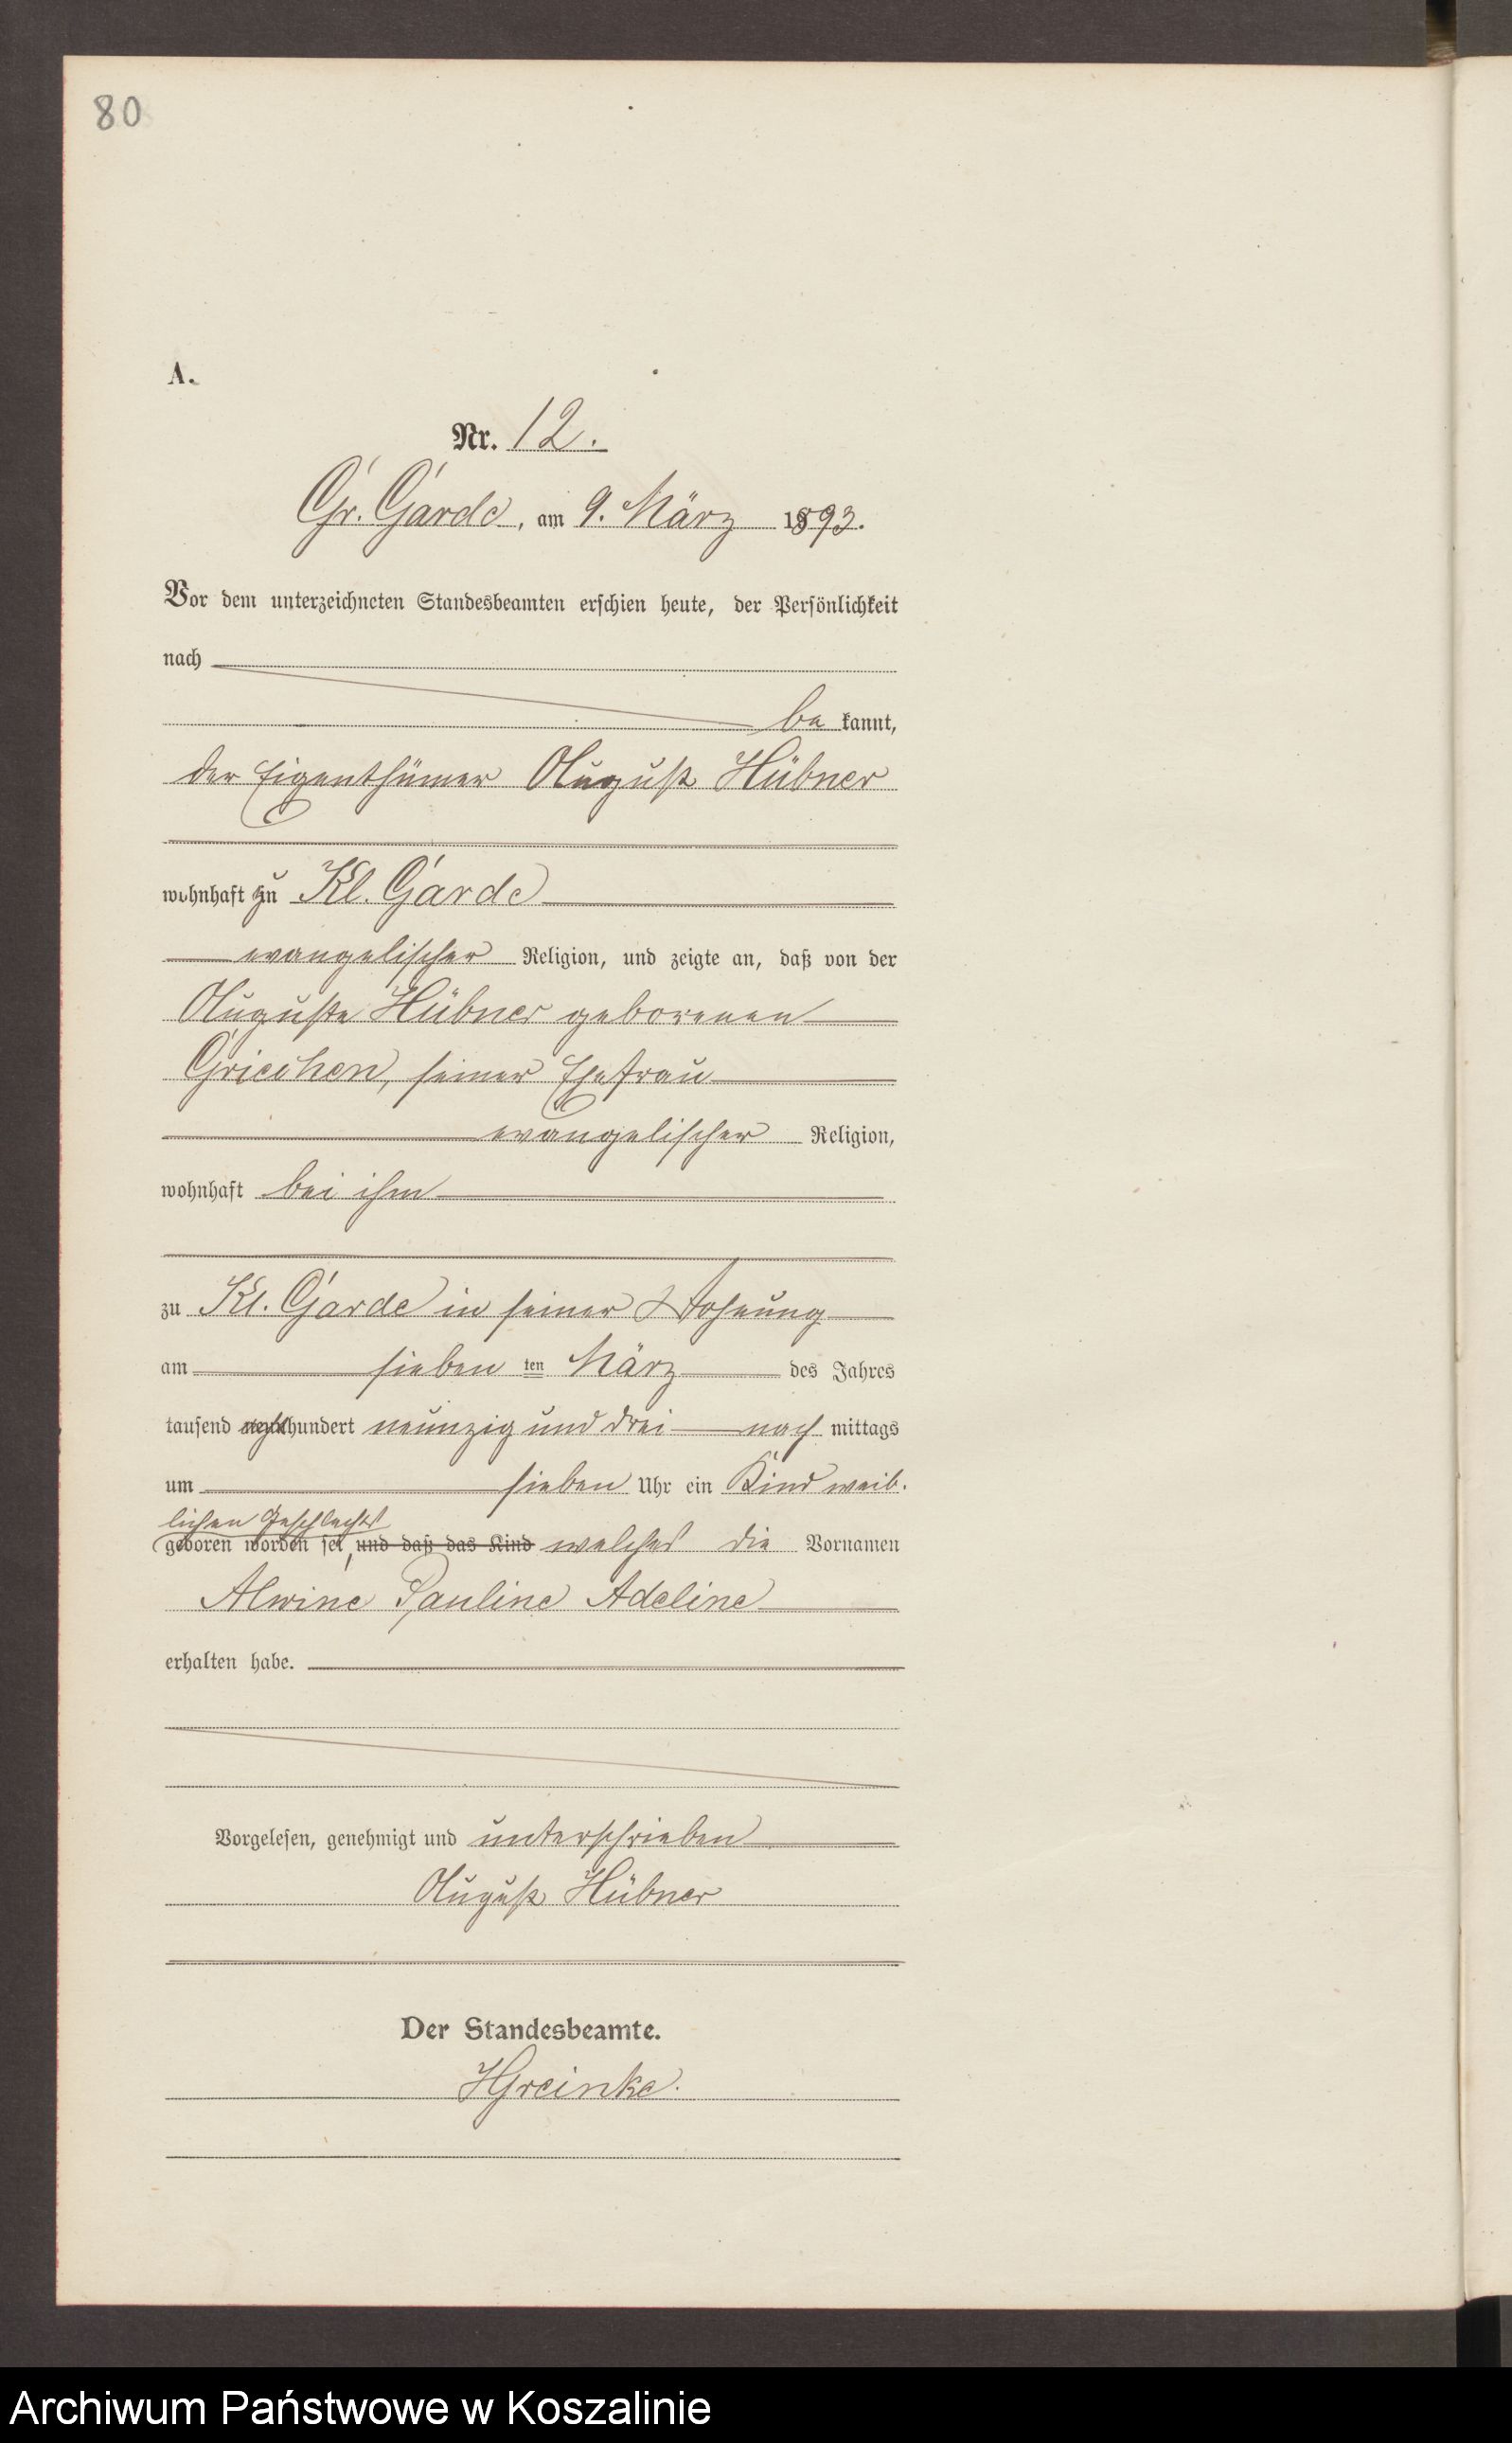 80
A.
Nr. 12.
Gr. Garde, am 9. März 1893.
Vor dem unterzeichneten Standesbeamten erschien heute, der Persönlichkeit
nach
be kannt,
der Eigenthümer August Hübner
wohnhaft zu Kl. Garde
evangelischer Religion, und zeigte an, daß von der
Auguste Hübner geborenen
Griechen, seiner Ehefrau
evangelischer Religion,
wohnhaft bei ihm
zu Kl. Garde in seiner Wohnung
am sieben ten März des Jahres
tausend achthundert neunzig und drei nach mittags
um sieben Uhr ein Kind weib-
lichen Geschlechts
geboren worden sei, und daß das Kind welches die Vornamen
Alwine Pauline Adeline
erhalten habe.
Vorgelesen, genehmigt und unterschrieben
August Hübner
Der Standesbeamte.
HGreinke.
Archiwum Państwowe w Koszalinie